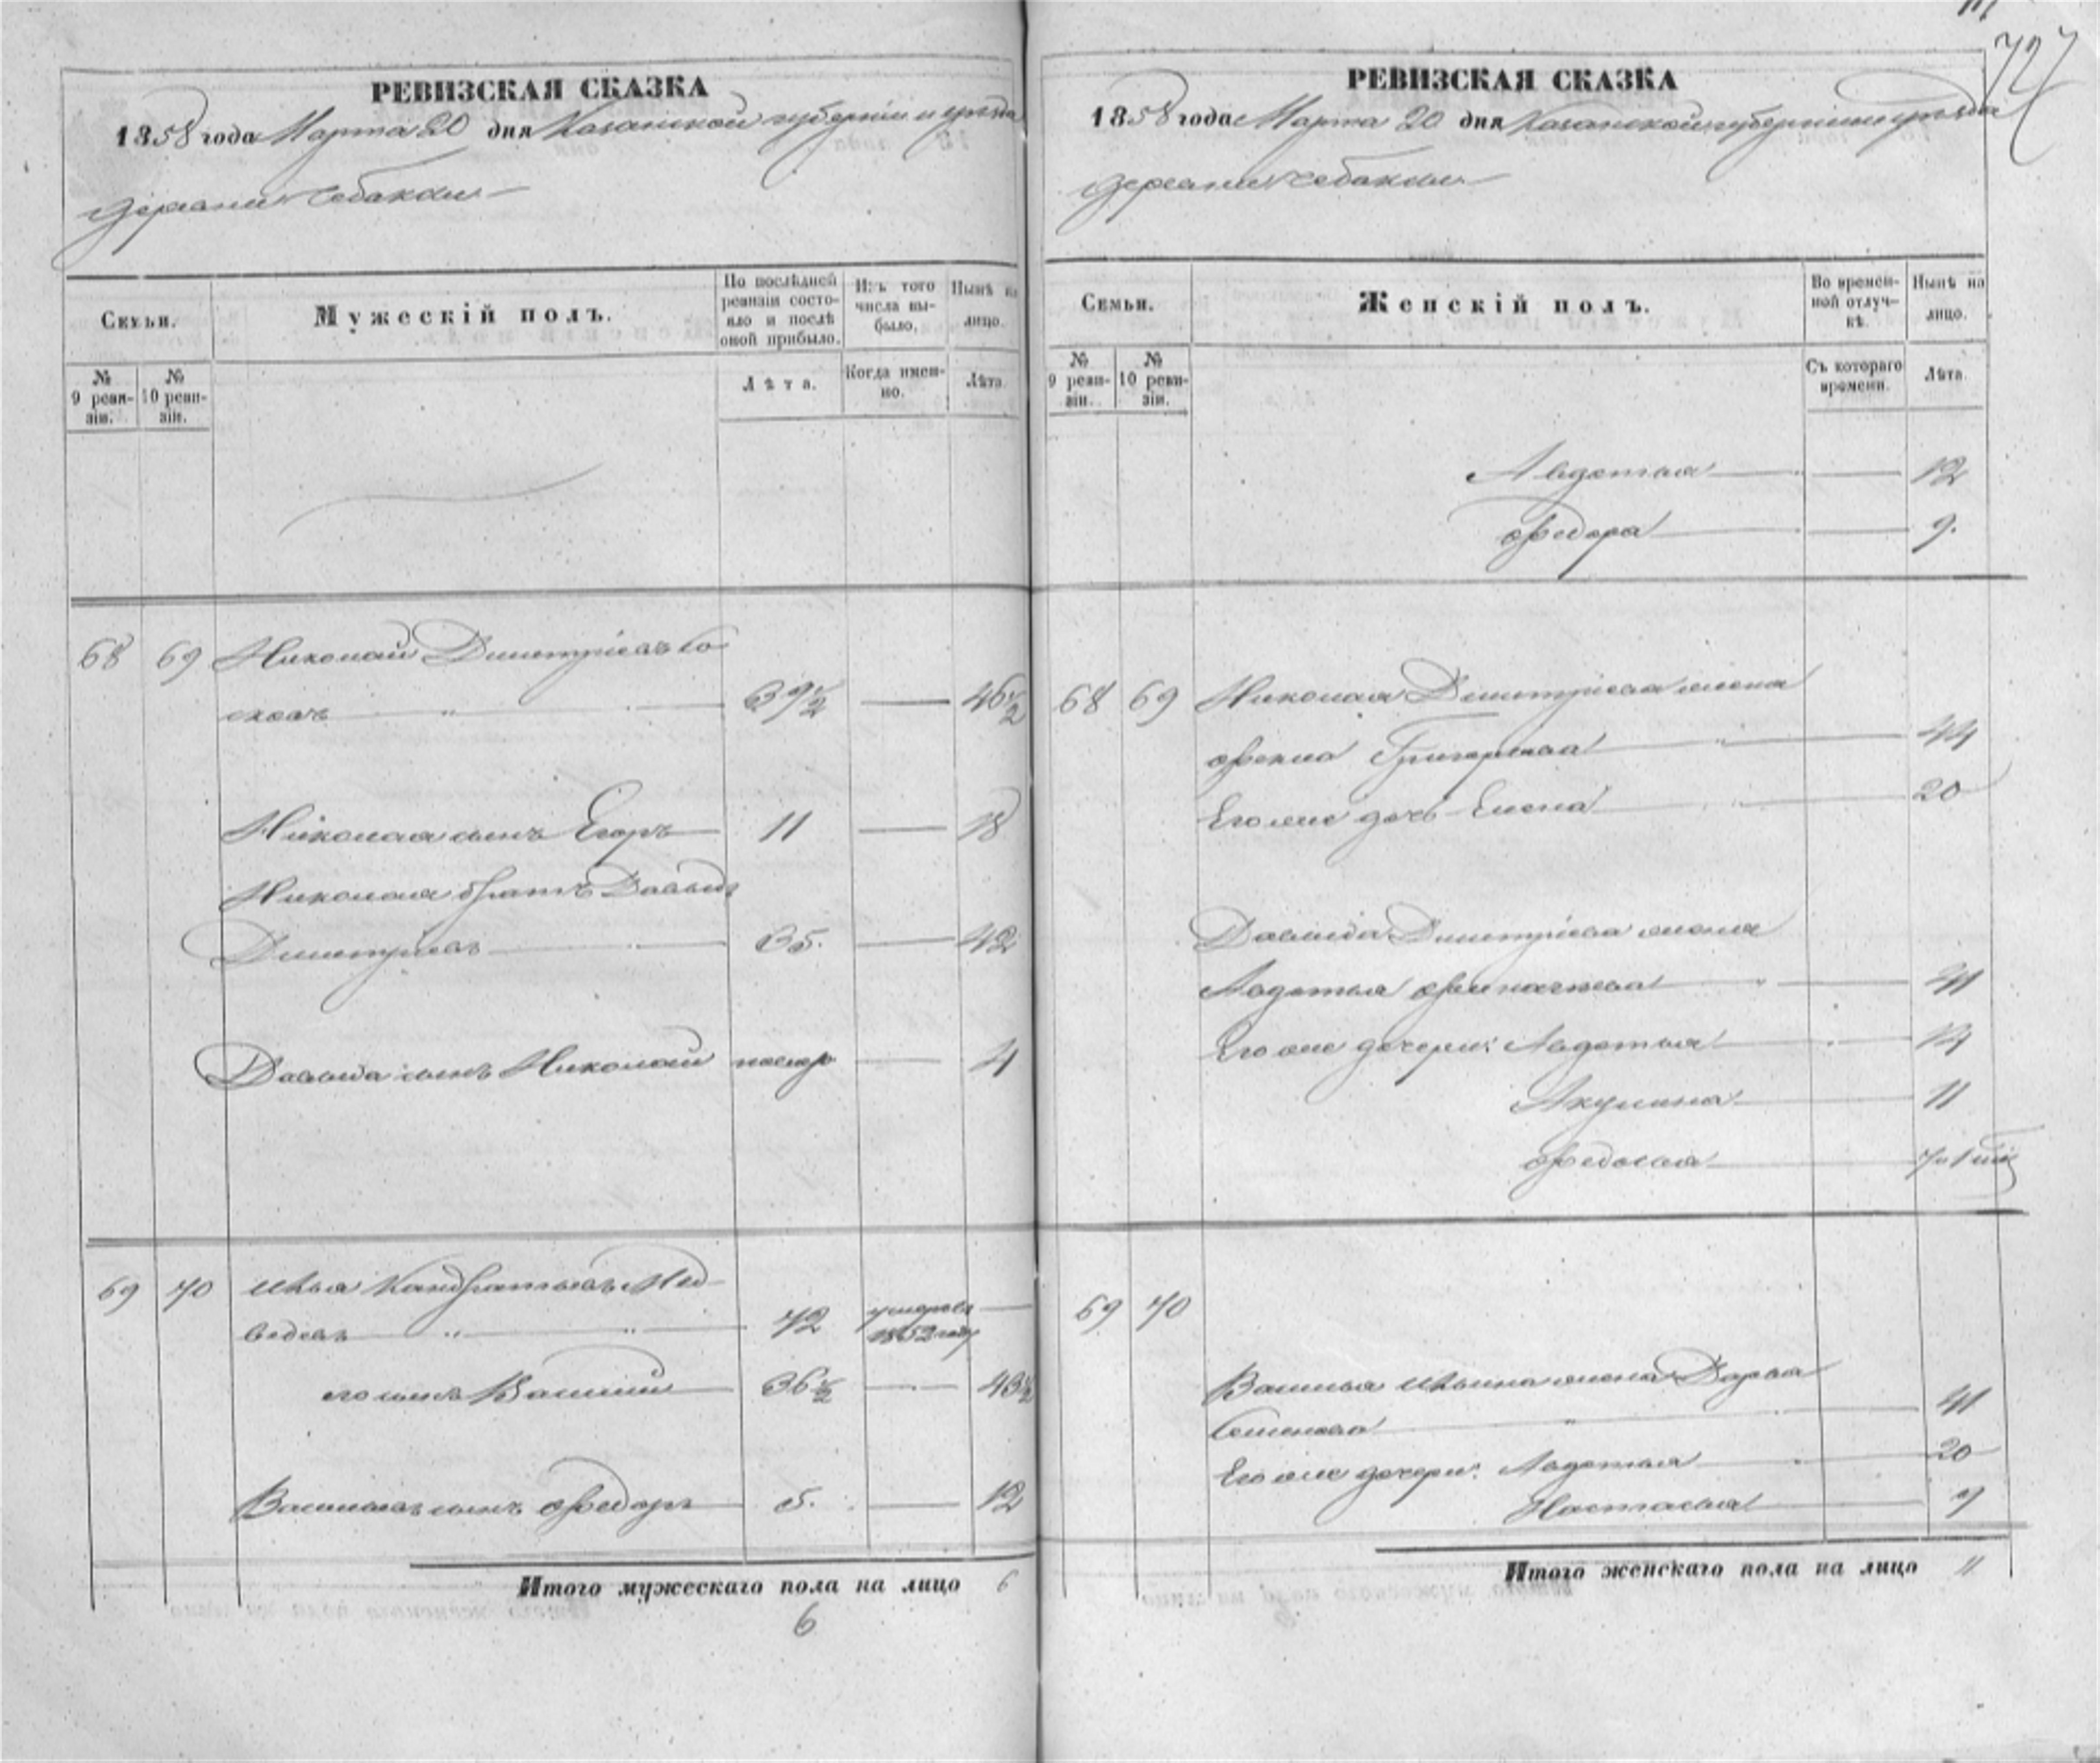 727
РЕВИЗСКАЯ СКАЗКА
1858 года Марта 20 дня Казанской губернiи и уѣзда
деревни Чебаксы
Семьи.
Мужескiй полъ.
По послѣдней ревизiи состояло и послѣ оной прибыло.
Изъ того числа выбыло.
Нынѣ на лицо.
№ 9 ревизiи.
№ 10 ревизiи.
Лѣта.
Когда именно.
Лѣта.
68 69 Николай Димитрiевъ
39½ — 46½
Николая сынъ Егоръ 11 — 18
Николая братъ Давыдъ
Димитрiевъ 35. — 42
Давыда сынъ Николай новор — 4
69 70 Илья Кандратьевъ Мед-
ведевъ 72 умеръ въ 1852 году —
его сынъ Василiй 36½ — 43½
Васильевъ сынъ Федоръ 5. — 12
Итого мужескаго пола на лицо 6
6
РЕВИЗСКАЯ СКАЗКА
1858 года Марта 20 дня Казанской губернiи и уѣзда
деревни Чебаксы
Семьи.
Женскiй полъ.
Во временной отлучкѣ.
Нынѣ на лицо.
№ 9 ревизiи.
№ 10 ревизiи.
Съ котораго времени.
Лѣта.
Авдотья — 12
Федора — 9.
68 69 Николая Димитрiева жена
Фекла Григорьева 44
Его же дочь Елена 20
Давыда Димитрiева жена
Авдотья 41
Его же дочери: Авдотья 14
Акулина 11
Федосья
69 70
Василья Ильина жена Дарья
Семенова 41
Его же дочери: Авдотья 20
Настасья 7
Итого женскаго пола на лицо 11